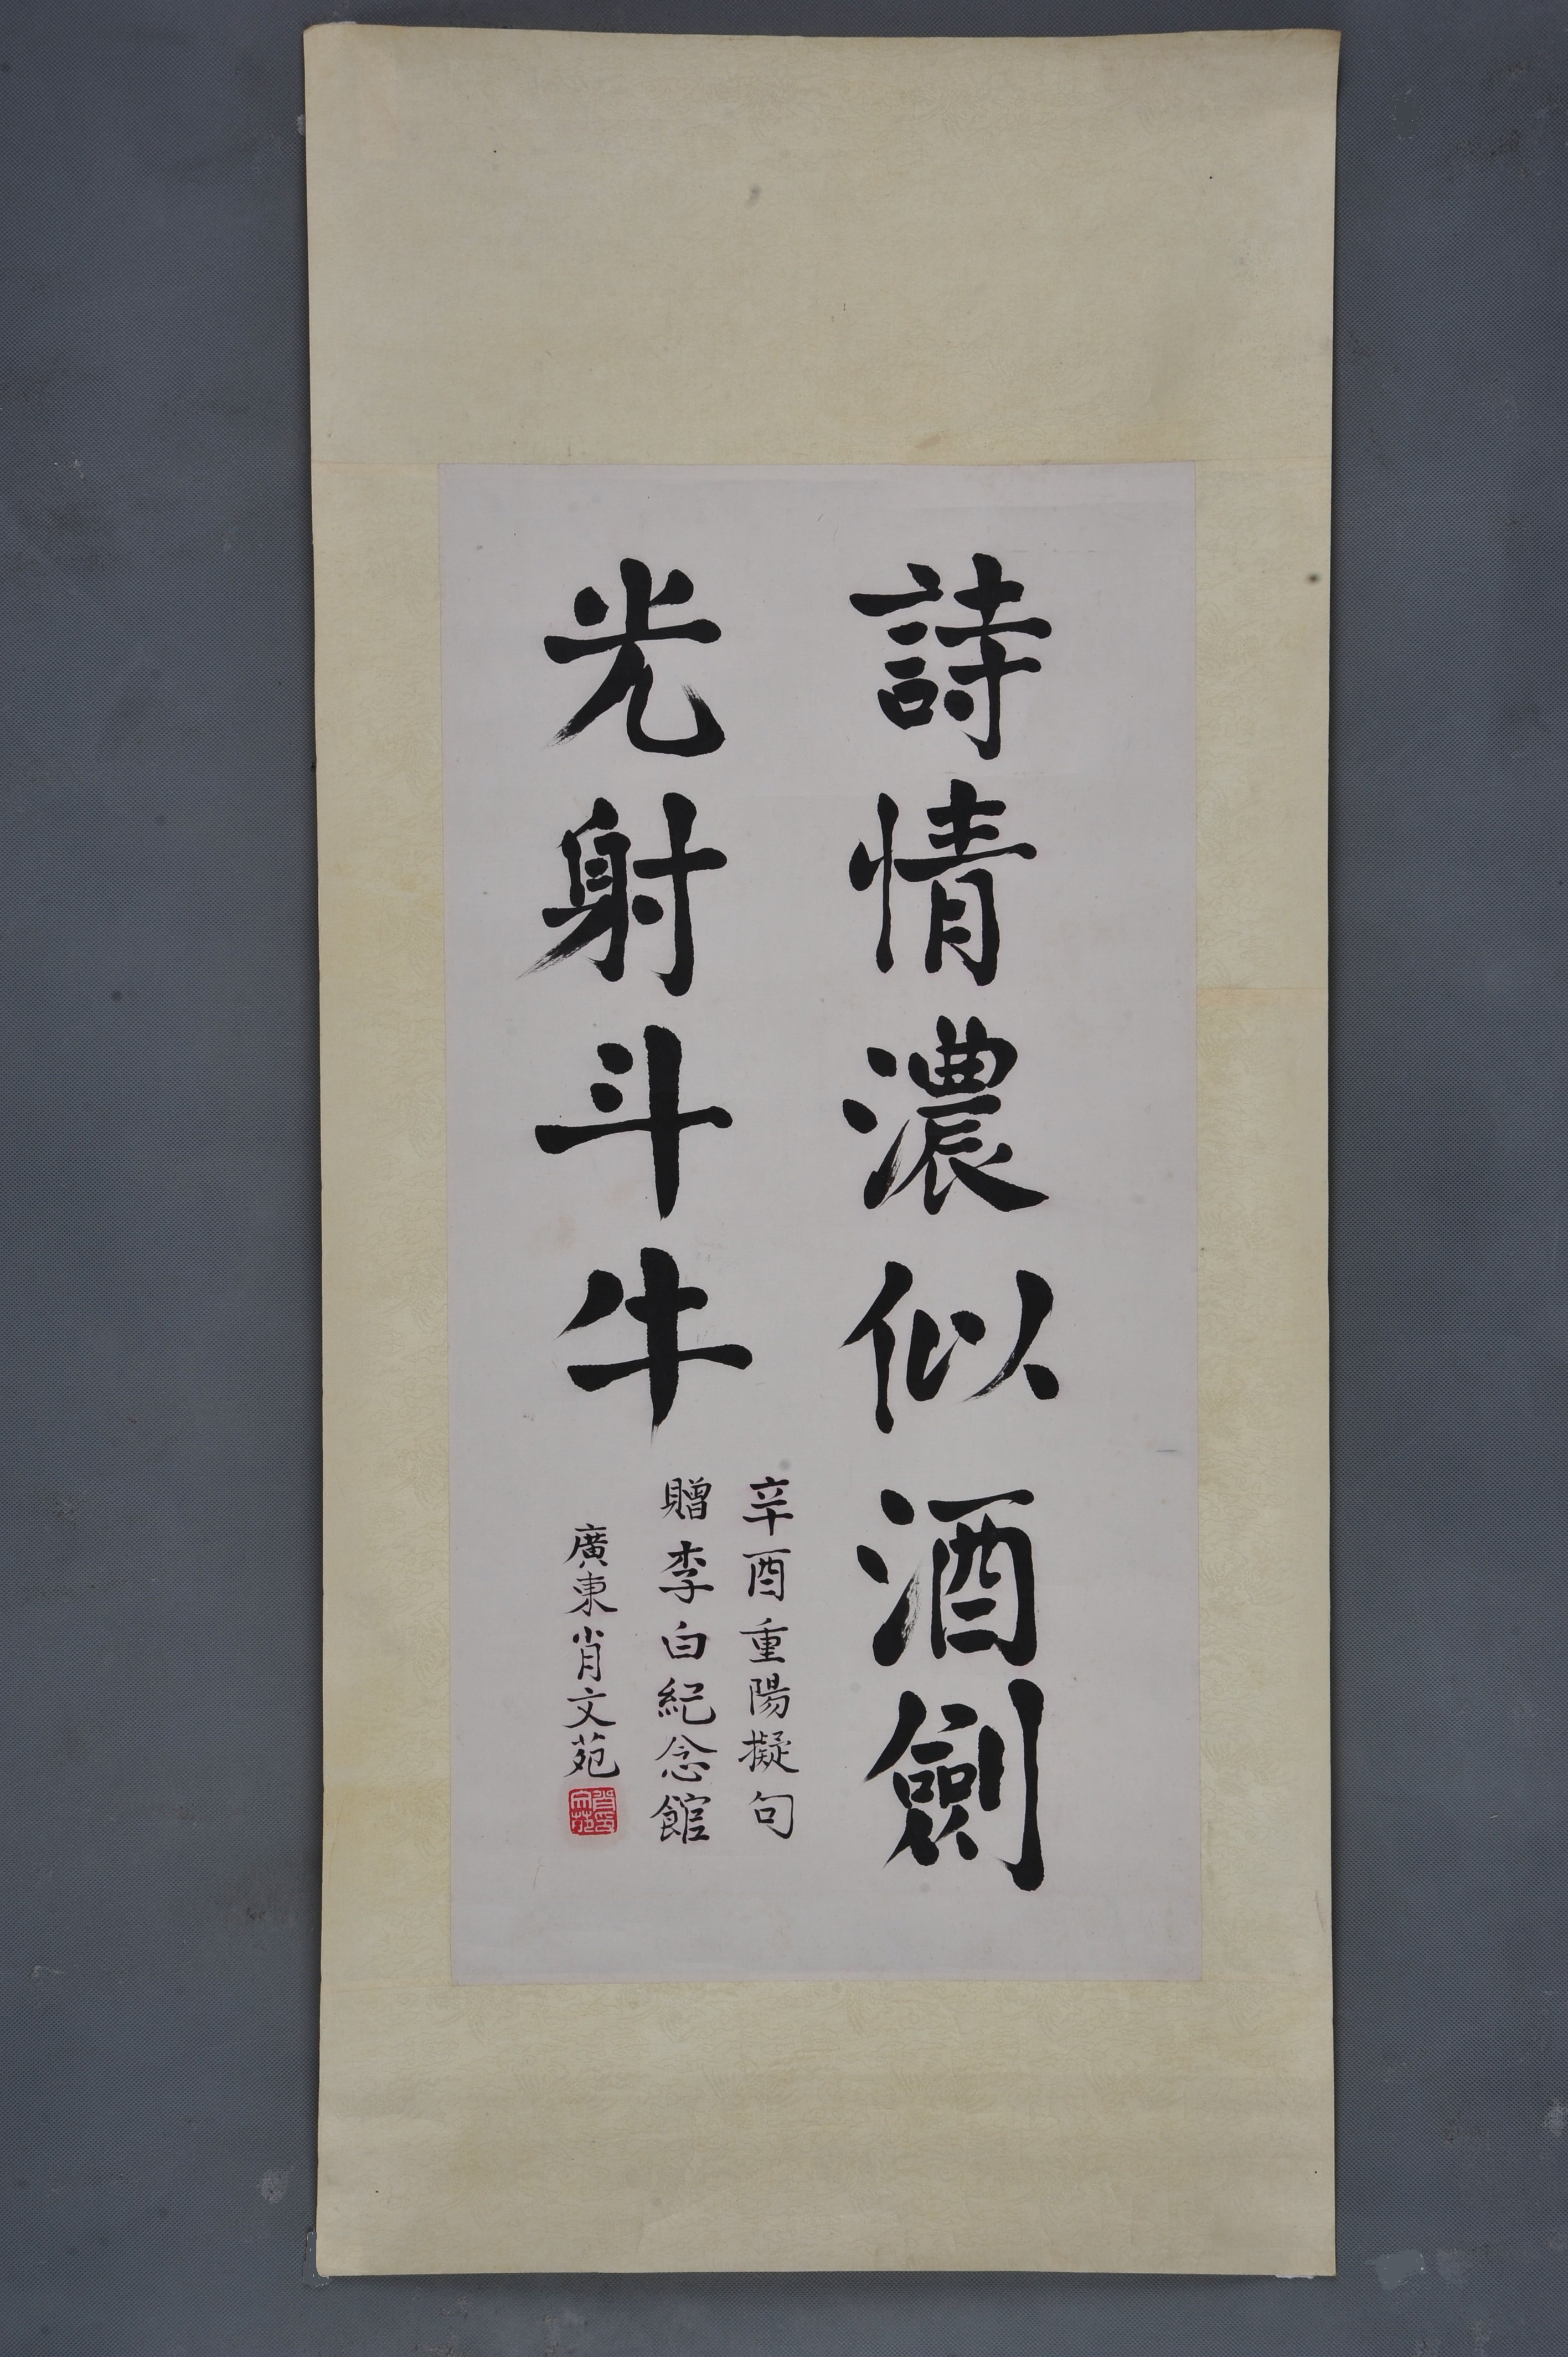 詩情濃似酒劍
光射斗牛
辛酉重陽擬句
贈李白紀念館
廣東肖文苑